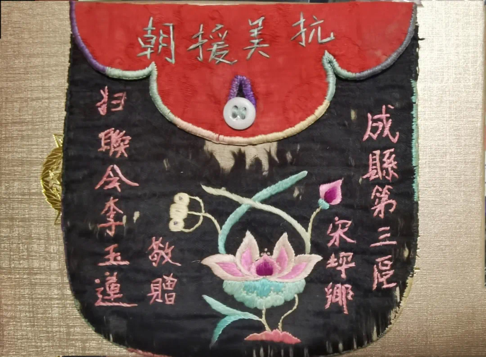 抗美援朝
成縣第三區
宋坪鄉
敬贈
妇聯会李玉蓮